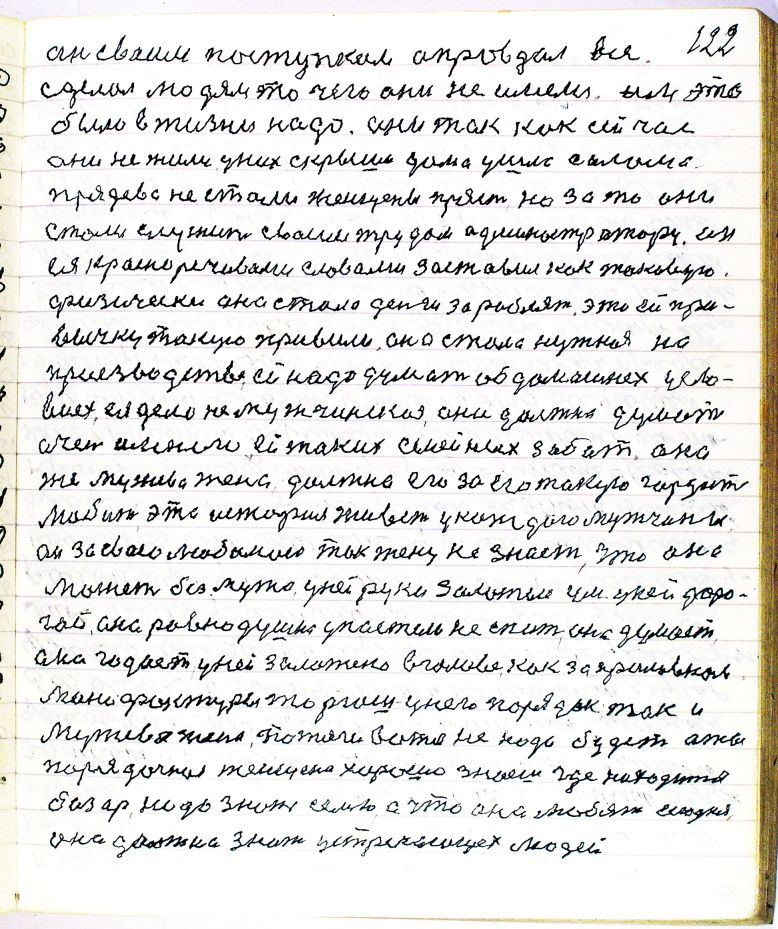 122
он своим поступком оправдал все.
сделал людям то чего они не имели. им это
было в жизни надо. они так как сейчас
они не жили, у них скрыши дома ушла салома
прядева не стали женщены пряст, но за то они
стали служит своим трудом администратору. он
ея красноречивами словами заставил как таковую.
физически она стала денги зароблят, это ей при-
вычку такую привили, она стала нужная на
приезводстве, ей надо думат об домашнех усло-
виех, ея дело не мужчинская, она должна думат
очем имено ей таких семейнех забот. она
же мужива жена, должна его за его такую гордит
любит, эта история живет у каждого мужчины,
он за свого любимого так жену не знает, что она
может без мужа, у ней руки залотые ум у ней доро-
гой, она равнодушна упостели не спит, она думает,
она годает, у ней заложено в голове, как за приловком
манофоктуры торгош у него порядок так и
мужева жена, потачи вота не надо будет
порядочная женщена хорошо знаеш где находится
базар, надо знат семю, а что она любят сегодня,
она должна знат устречающех людей